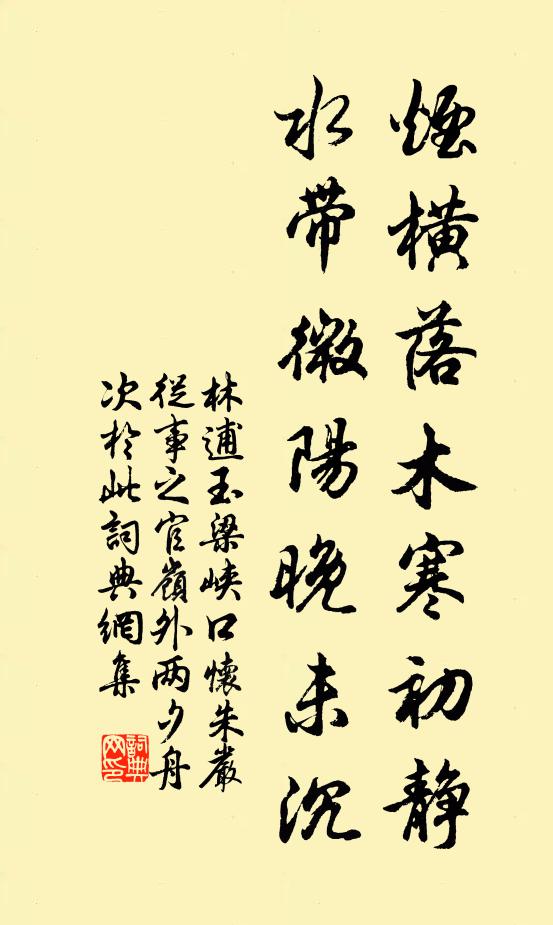 煙橫落木寒初静
水帶微陽晚未沉
林逋玉梁峽口懷朱嚴
從事之官嶺外两夕舟
次於此詞典網集
詞典
网印